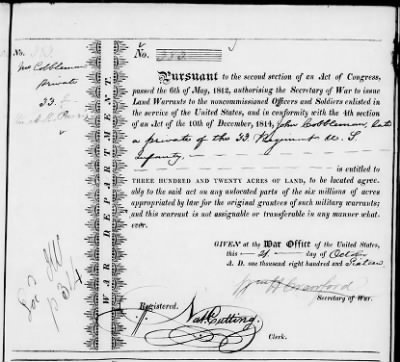 No.
Jno Cobbleman
private
33.
WAR DEPARTMENT.
No. 333
Pursuant to the second section of an Act of Congress,
passed the 6th of May, 1812, authorising the Secretary of War to issue
Land Warrants to the noncommissioned Officers and Soldiers enlisted in
the service of the United States, and in conformity with the 4th section
of an Act of the 10th of December, 1814, John Cobbleman, late
a private of the 33 Regiment U. S.
infantry,
is entitled to
THREE HUNDRED AND TWENTY ACRES OF LAND, to be located agree-
ably to the said act on any unlocated parts of the six millions of acres
appropriated by law for the original grantees of such military warrants;
and this warrant is not assignable or transferable in any manner what-
ever.
GIVEN at the War Office of the United States,
this 21 day of October
A. D. one thousand eight hundred and Sixteen
Wm H Crawford
Secretary of War.
Registered.
Nat. Cutting
Clerk.